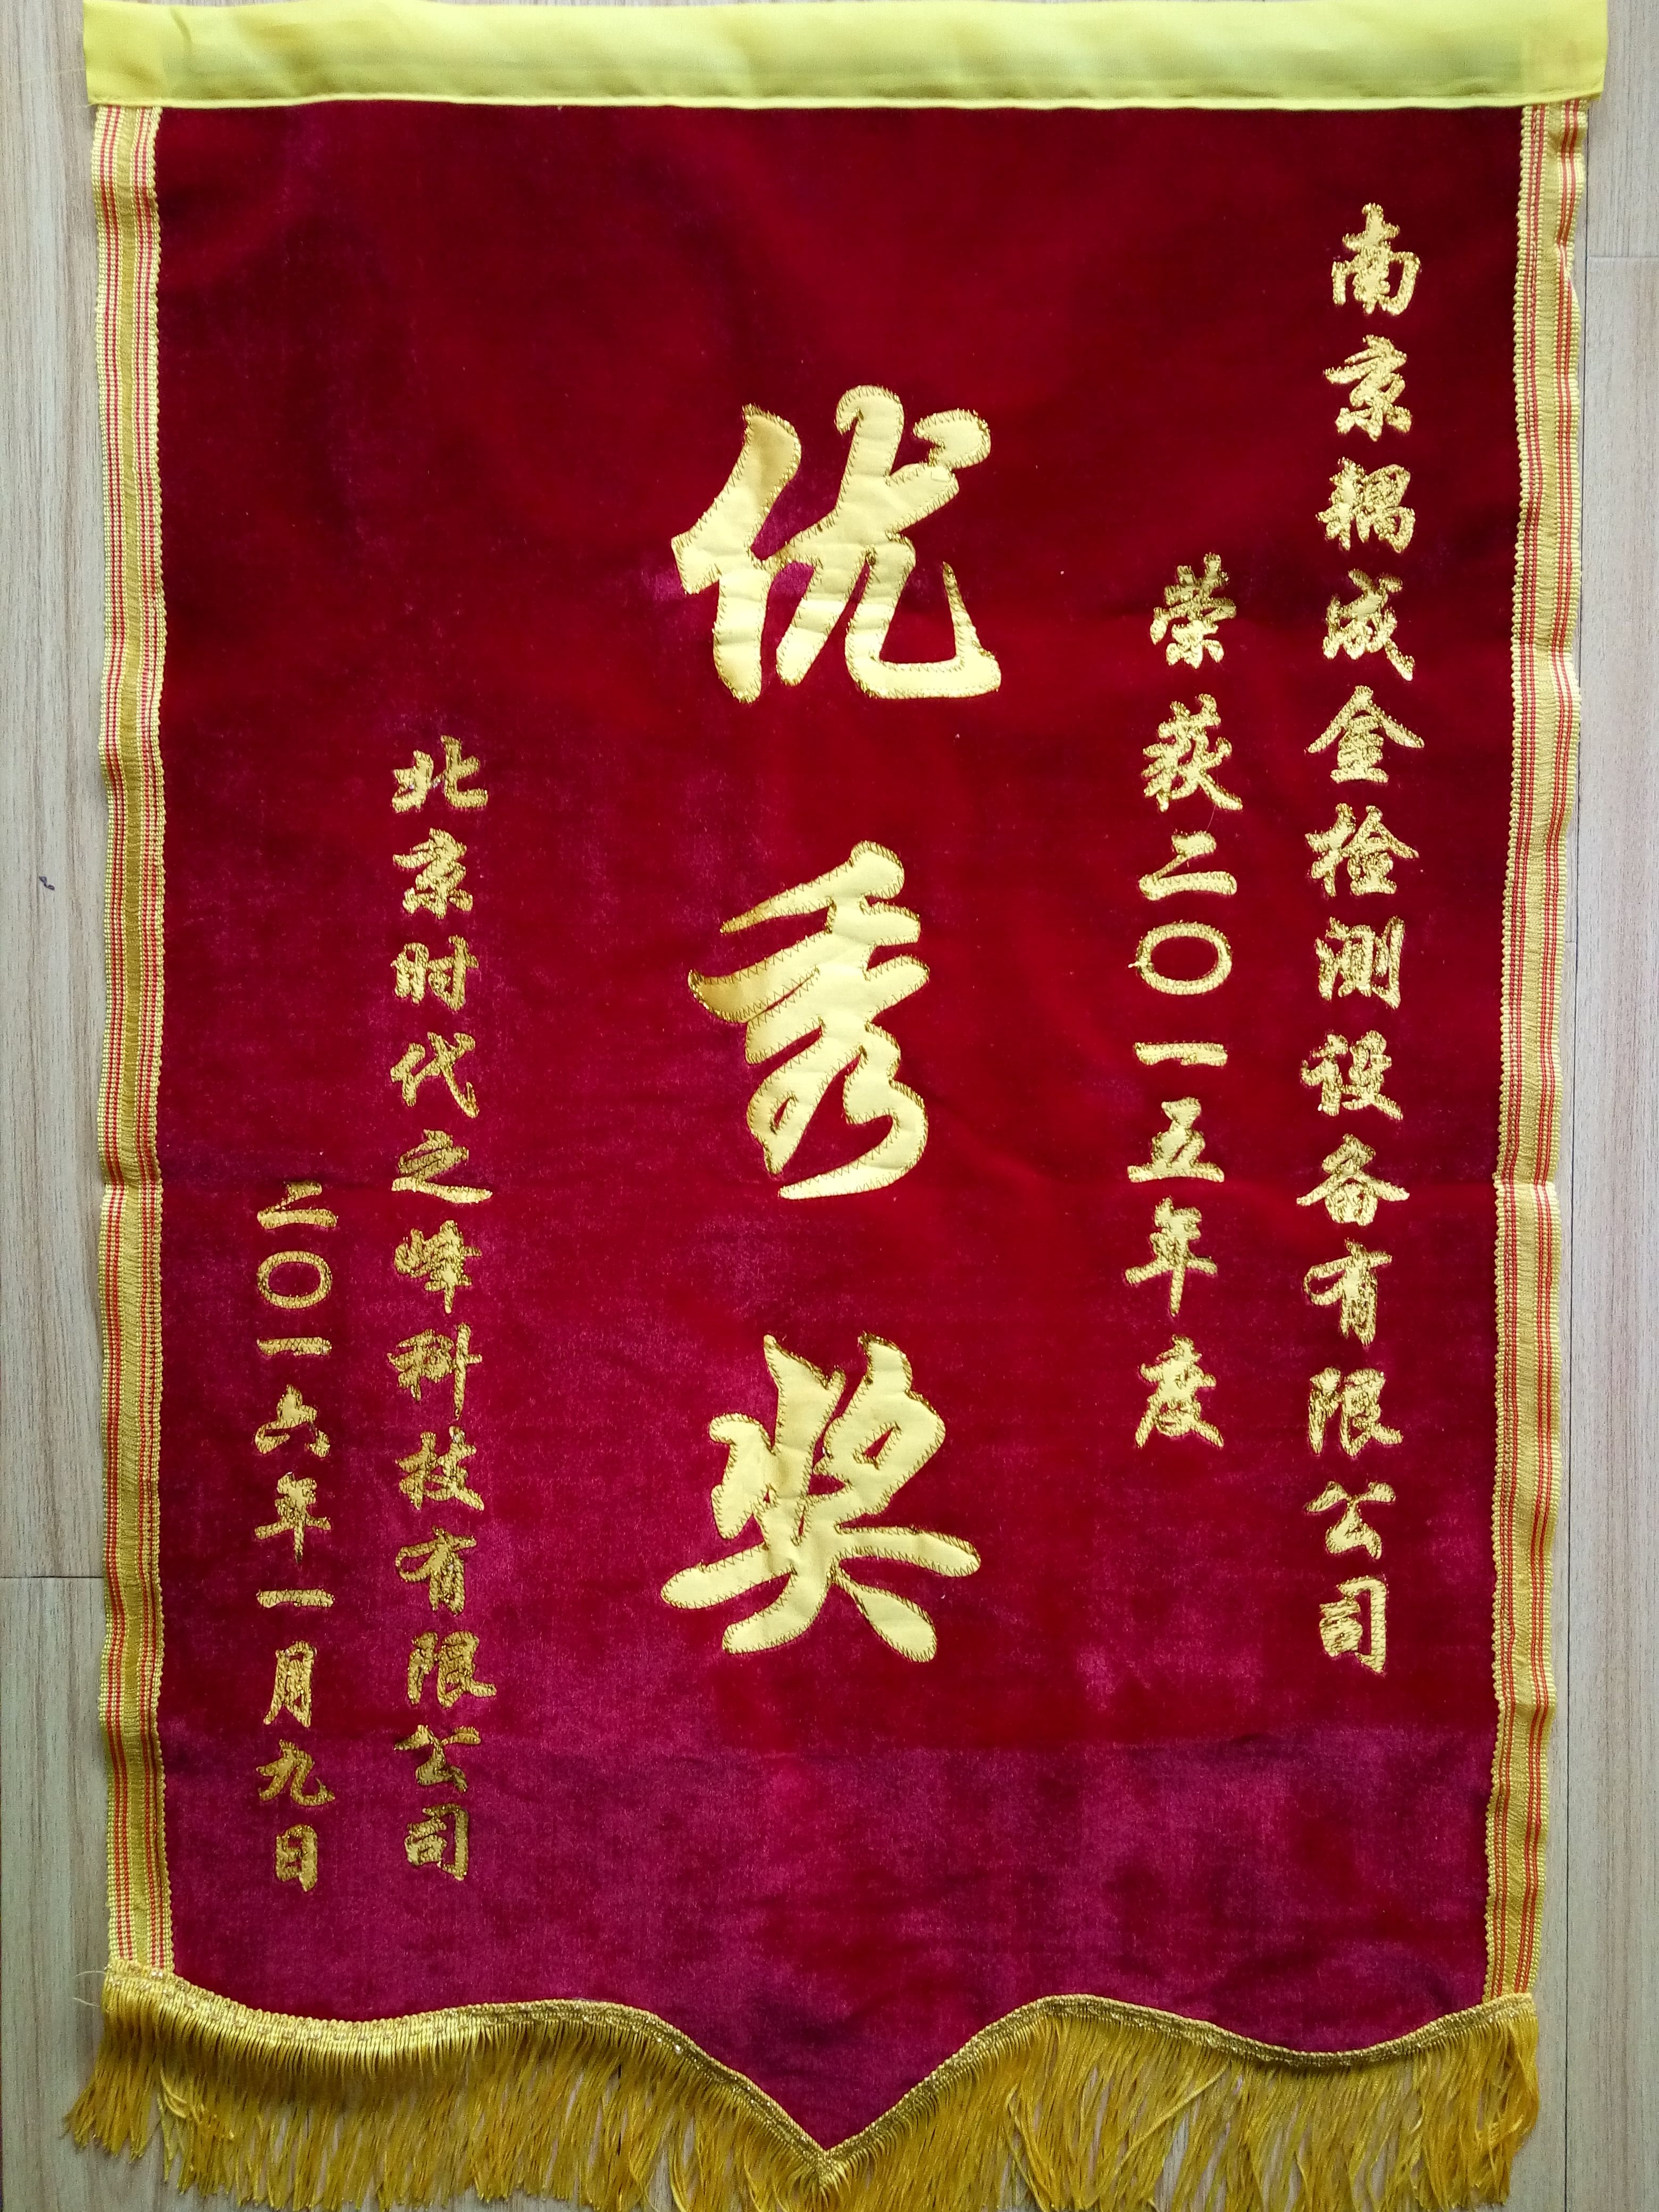 南京耦成金检测设备有限公司
荣获二〇一五年度
优秀奖
北京时代之峰科技有限公司
二〇一六年一月九日